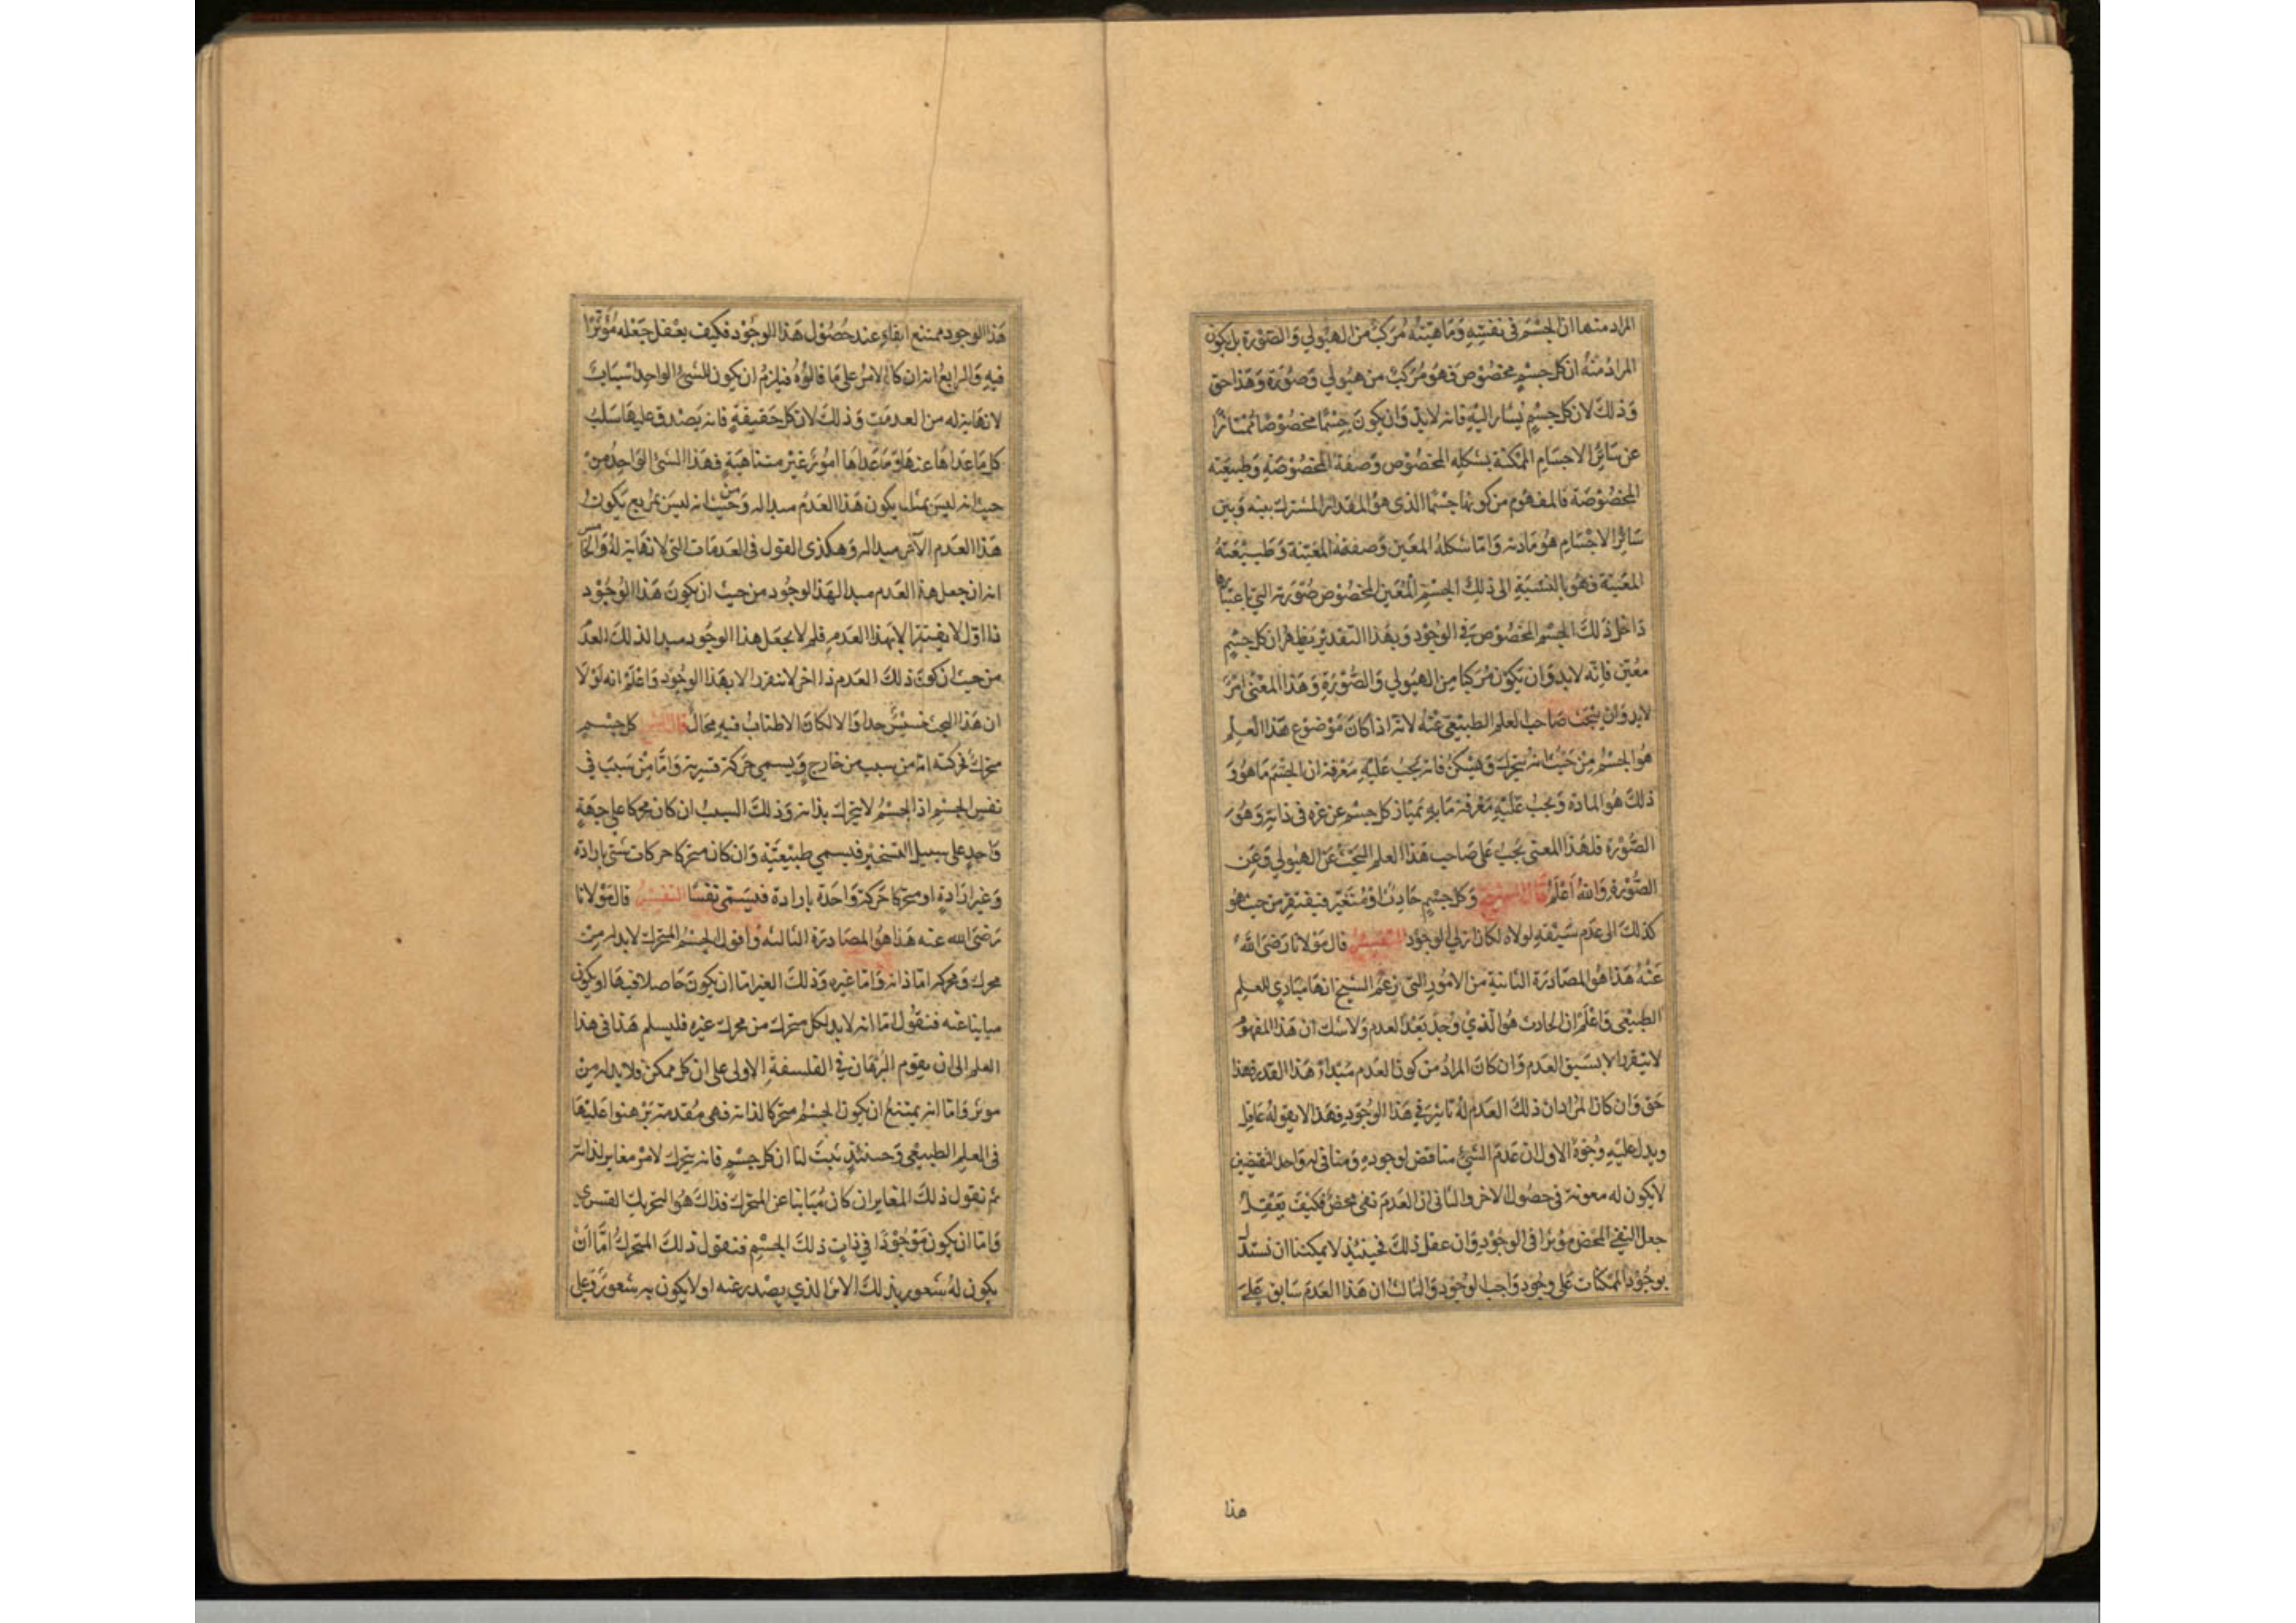 المراد منها ان الجسْمَ في نفسِهِ وَمَاهيّته مُركبٌ من الهيُولي وَالصّوْرة بل يكون
المرادُ منهُ ان كل جسْمٍ مخصُوْصٍ فهوَ مُركبٌ من هيُولي وَصُوْرَة وَهَذا حق
وَذلكَ لان كل جسْمٍ يُشار اليْهِ فانه لابدّ وَان يكونَ جسْمًا مخصُوْصًا مُمْتازًا
عن سَائِر الاجسَامِ الممكنة بشكله المخصُوْص وَصفته المخصُوْصَةِ وَطبيعته
المخصُوْصَة فالمفهُوم من كونها جسْمًا الذي هوَ المقدار المشترك بينه وَبين
سَائِر الاجْسَامِ هُوَ مَادته وَامّا شكلهُ المعَين وَصفتهُ المعَينة وَطبيْعَتهُ
المعَينة فهوَ بالنسْبَةِ الى ذلكَ الجسْمِ المُعَين المخصُوْص صُوْرَته التي باعتبارها
دَاخل ذلكَ الجسْم المخصُوْص في الوجُوْد وَبهَذا التقدير يَظهر ان كل جسْمٍ
معَينٍ فانّه لابد وَان يَكونَ مُركبًا مِن الهيُولي وَالصُّوْرَةِ وَهَذا المعْنى امْرٌ
لابد وَان يبْحَث صَاحب العلم الطبيْعي عَنْه لانه اذا كانَ مَوْضوُع هَذا العِلم
هوَ الجسْم مِنْ حَيْثُ انه يتحرك وَيسْكنُ فانه يجبُ عَليْهِ مَعْرفة ان الجسْمَ مَا هوَ وَ
ذلكَ هُوَ المادة وَيجبُ عَليْهِ مَعْرفة مَا بهِ يمتاز كل جسْم عن غيره في ذاتهِ وَهُوَ
الصُّوْرة فلهَذا المعنى يَجبُ عَلى صَاحب هَذا العلم البَحْث عَنَ الهيُولي وَعَن
الصُّوْرة وَاللهُ اَعْلمُ قَالَ الشيخ وَكل جسْمٍ حَادِث اوْ مُتَغيّر فيفتقر من حيث هُوَ
كذلكَ الى عَدَم سَبقهِ لولاه لكان ازلي الوجُوْد التفسير قال مَوْلانا رَضيَ اللهُ
عَنْهُ هَذا هوَ المصَادَرَة الثانية من الامُور التي زعمَ الشيخ انهَا مبَادي للعِلم
الطبيْعي وَاعْلمْ ان الحَادث هُوَ الّذي وُجدَ بَعْدَ العدم وَلا شك ان هَذا المفهُوْمَ
لا يتقرر الا بسَبق العدم وَان كان المرادُ من كونِ العَدم مَبْدأ هَذا القدر فهذا
حَق وَان كان المرَاد ان ذلكَ العَدم لهُ تاثيرٌ في هَذا الوجُوْدِ فهَذا لا يقولهُ عَاقِل
ويدل عليْهِ وُجُوْهٌ الاول ان عَدَم الشَّيْءِ مناقض لوجودِهِ وَمنافي له وَاحد النقيضين
لا يكون له معونة في حصُول الاخر والثاني ان العَدمَ نفي محضٌ فكيْفَ يَعْقِلُ
جعل النفي المحَض مؤثرا في الوجُوْدِ وَان عقل ذلكَ فحينئذٍ لا يمكننا ان نستدل
بوجُوْدِ الممكنات عَلى وجُود وَاجب الوجُوْد وَالثالث ان هَذا العَدمَ سَابق عَلى
هذا
هَذا الوجود ممتنع البقاء عند حُصُوْل هَذا الوجُوْد فكيف يعْقل جَعْله مُؤثرًا
فيهِ وَالرابعُ انه ان كان الامرُ عَلى مَا قالوُهُ فيلزمُ ان يكون للشيْءِ الواحِد اسْبَابٌ
لا نهَاية له من العدمَيةِ وَذلكَ لان كل حَقيقةٍ فانه يَصْدق عليها سَلبُ
كل مَا عَداهَا عنهَا وَمَا عَداهَا امُوْر غير متناهيَةٍ فهَذا الشئ الوَاحِدُ مِنْ
حيث انه ليسَ بمثلث يكون هَذا العَدَم مبدا له وَمن حَيْثُ انه ليسَ بمُربع يَكونُ
هَذا العَدم الآخر مبدا له وَهكذي القول في العَدمَات التي لا نهَاية لهُ وَالخامس
انه ان جعل هذا العَدم مبدا لهَذا الوجود من حيث ان يكونَ هَذا الوُجُوْد
ذا اول لا يفتقر الا بهذا العَدمِ فلم لا يجعَل هذا الوجُود مبدا لذلكَ العدَم
من حيث ان كون ذلكَ العَدم ذا اخر لا يتقرر الا بهَذا الوجُوْد وَاعْلَمْ انه لَوْ لا
ان هَذا البحث خسيْسٌ جدا وَالا لكان الاطناب فيهِ مَجَالٌ قال الشيخ كل جسْمٍ
متحركٍ فحركته امّا من سبب من خارج وَيسمي حَركة قسرية وَامّا مِنْ سَبَب في
نفسِ الجسْمِ اذ الجسْمُ لا يتحرك بذاته وَذلكَ السببُ ان كان محركا على جهَةٍ
وَاحِدةٍ على سبيل التسْخير فيسمي طبيْعَتهِ وَان كان متحركا حركات شتّى بارادة
وَغير ارَادةٍ او متحركا حَركة وَاحدَة بارادة فيُسَمّى نفسًا التفسير قال مَوْلانا
رَضيَ الله عنه هَذا هُوَ المصَادَرة الثالثه وَاقول الجسْمُ المتحرك لابد له مِنْ
محرك وَمحركه امّا ذاته وَامّا غيره وَذلكَ الغير امّا ان يكونَ حَاصلا فيهَا او يكون
مباينا عنه فنقول امّا انه لابد لكل متحرك من محرك غيره فليسلم هَذا في هذا
العلم الى ان يقوم البُرْهَان في الفلسفةِ الاولى على ان كل ممكن فلابد له مِنْ
مؤثر وَامّا انه يمتنعُ ان يكون الجسْمُ متحركا لذاته فهي مُقدمة بَرْهنوا عَليْهَا
في العلم الطبيعي وَحينئذٍ ثَبتَ لنا ان كل جسْمٍ فانه يتحرك لامْرٍ مغاير لذاته
ثم نقول ذلكَ المغاير ان كان مُبَاينا عن المتحرك فذاكَ هُوَ التحريك القسري
وَامّا ان يكون مَوْجُوْدًا في ذات ذلكَ الجسْمِ فنقول ذلكَ المتحركُ امّا انْ
يكون لهُ شعور بذلكَ الامر الذي يصْدر عنه او لا يكون به شعور وَعلى